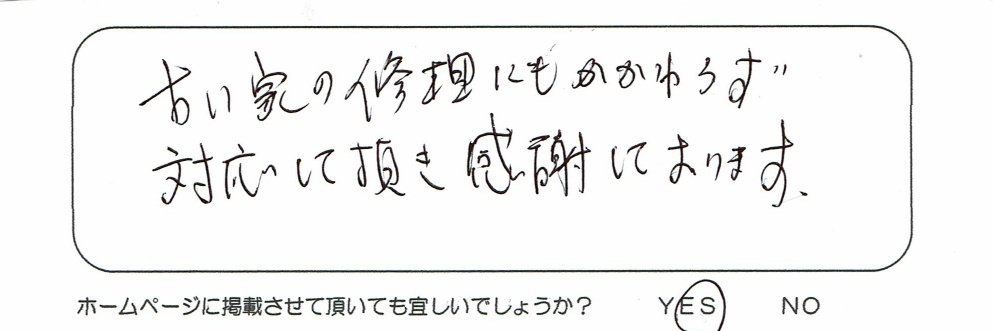 古い家の修理にもかかわらず
対応して頂き感謝しております.
ホームページに掲載させて頂いても宜しいでしょうか? YES NO